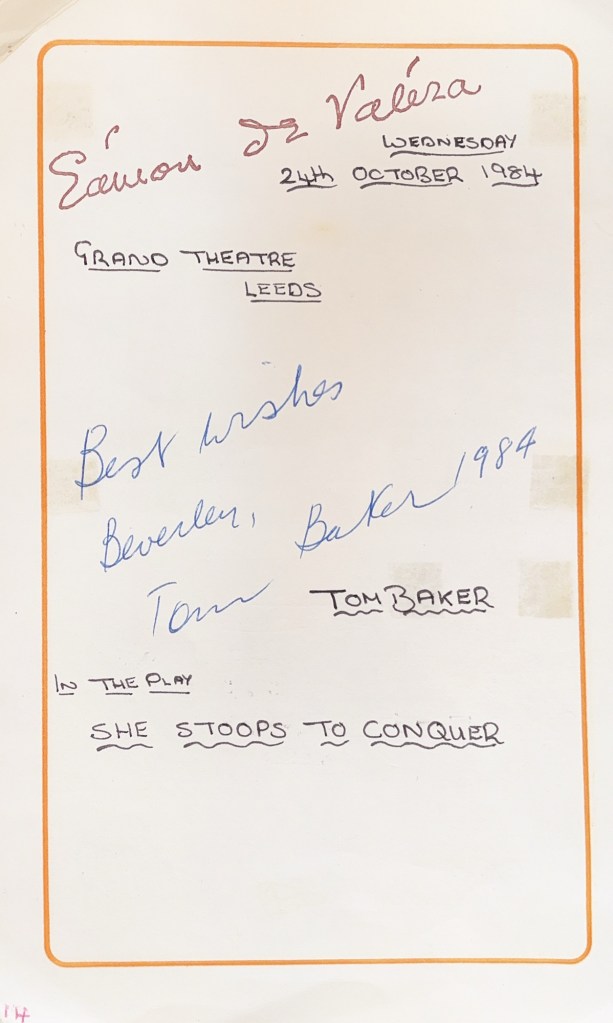 Éamon de Valéra
WEDNESDAY
24th OCTOBER 1984
GRAND THEATRE
LEEDS
Best wishes
Beverley,
Tom Baker 1984
TOM BAKER
IN THE PLAY
SHE STOOPS TO CONQUER
14